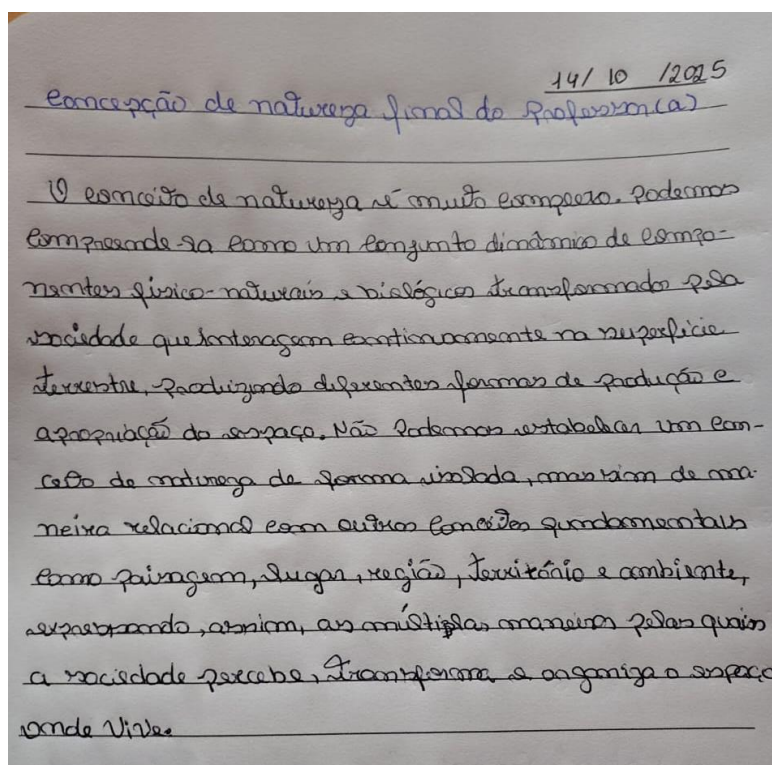 14/ 10 /2025
Concepção de natureza final do Professor(a)
O conceito de natureza é muito complexo. Podemos
compreende-la como um conjunto dinâmico de compo-
nentes físico-naturais e biológicos transformados pela
sociedade que interagem continuamente na superfície
terrestre, produzindo diferentes formas de produção e
apropriação do espaço. Não Podemos estabelecer um con-
ceito de natureza de forma isolada, mas sim de ma-
neira relacional com outros conceitos fundamentais
como paisagem, lugar, região, território e ambiente,
expressando, assim, as múltiplas maneiras pelas quais
a sociedade percebe, transforma e organiza o espaço
onde vive.